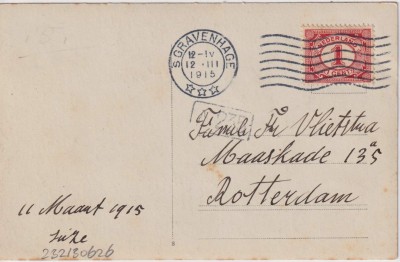 S GRAVENHAGE
12-IV
12.III
1915
NEDERLAND
1
CENT
Famile Fr Vlietstra
Maaskade 13 a
Rotterdam
11 Maart 1915
232130626